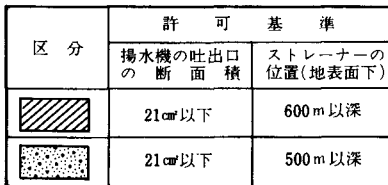 区分
許可基準
揚水機の吐出口
の断面積
ストレーナーの
位置(地表面下)
21㎠以下
600m以深
21㎠以下
500m以深